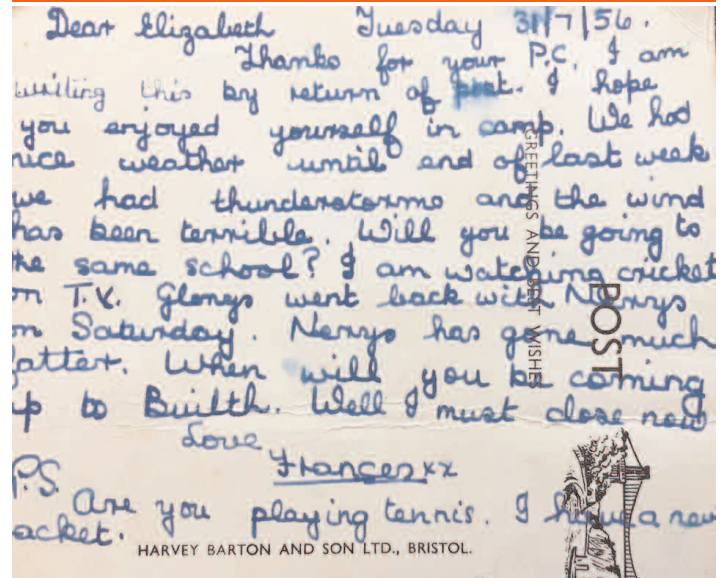 Dear Elizabeth Tuesday 31/7/56.
Thanks for your P.C. I am
writing this by return of post. I hope
you enjoyed yourself in camp. We had
nice weather until end of last week
we had thunderstorms and the wind
has been terrible. Will you be going to
he same school? I am watching cricket
on T.V. Glenys went back with Nerys
on Saturday. Nerys has gone much
fatter. When will you be coming
up to Builth. Well I must close now
Love
Frances xx
P.S. Are you playing tennis. I have a new
racket.
GREETINGS AND BEST WISHES
POST
HARVEY BARTON AND SON LTD., BRISTOL.